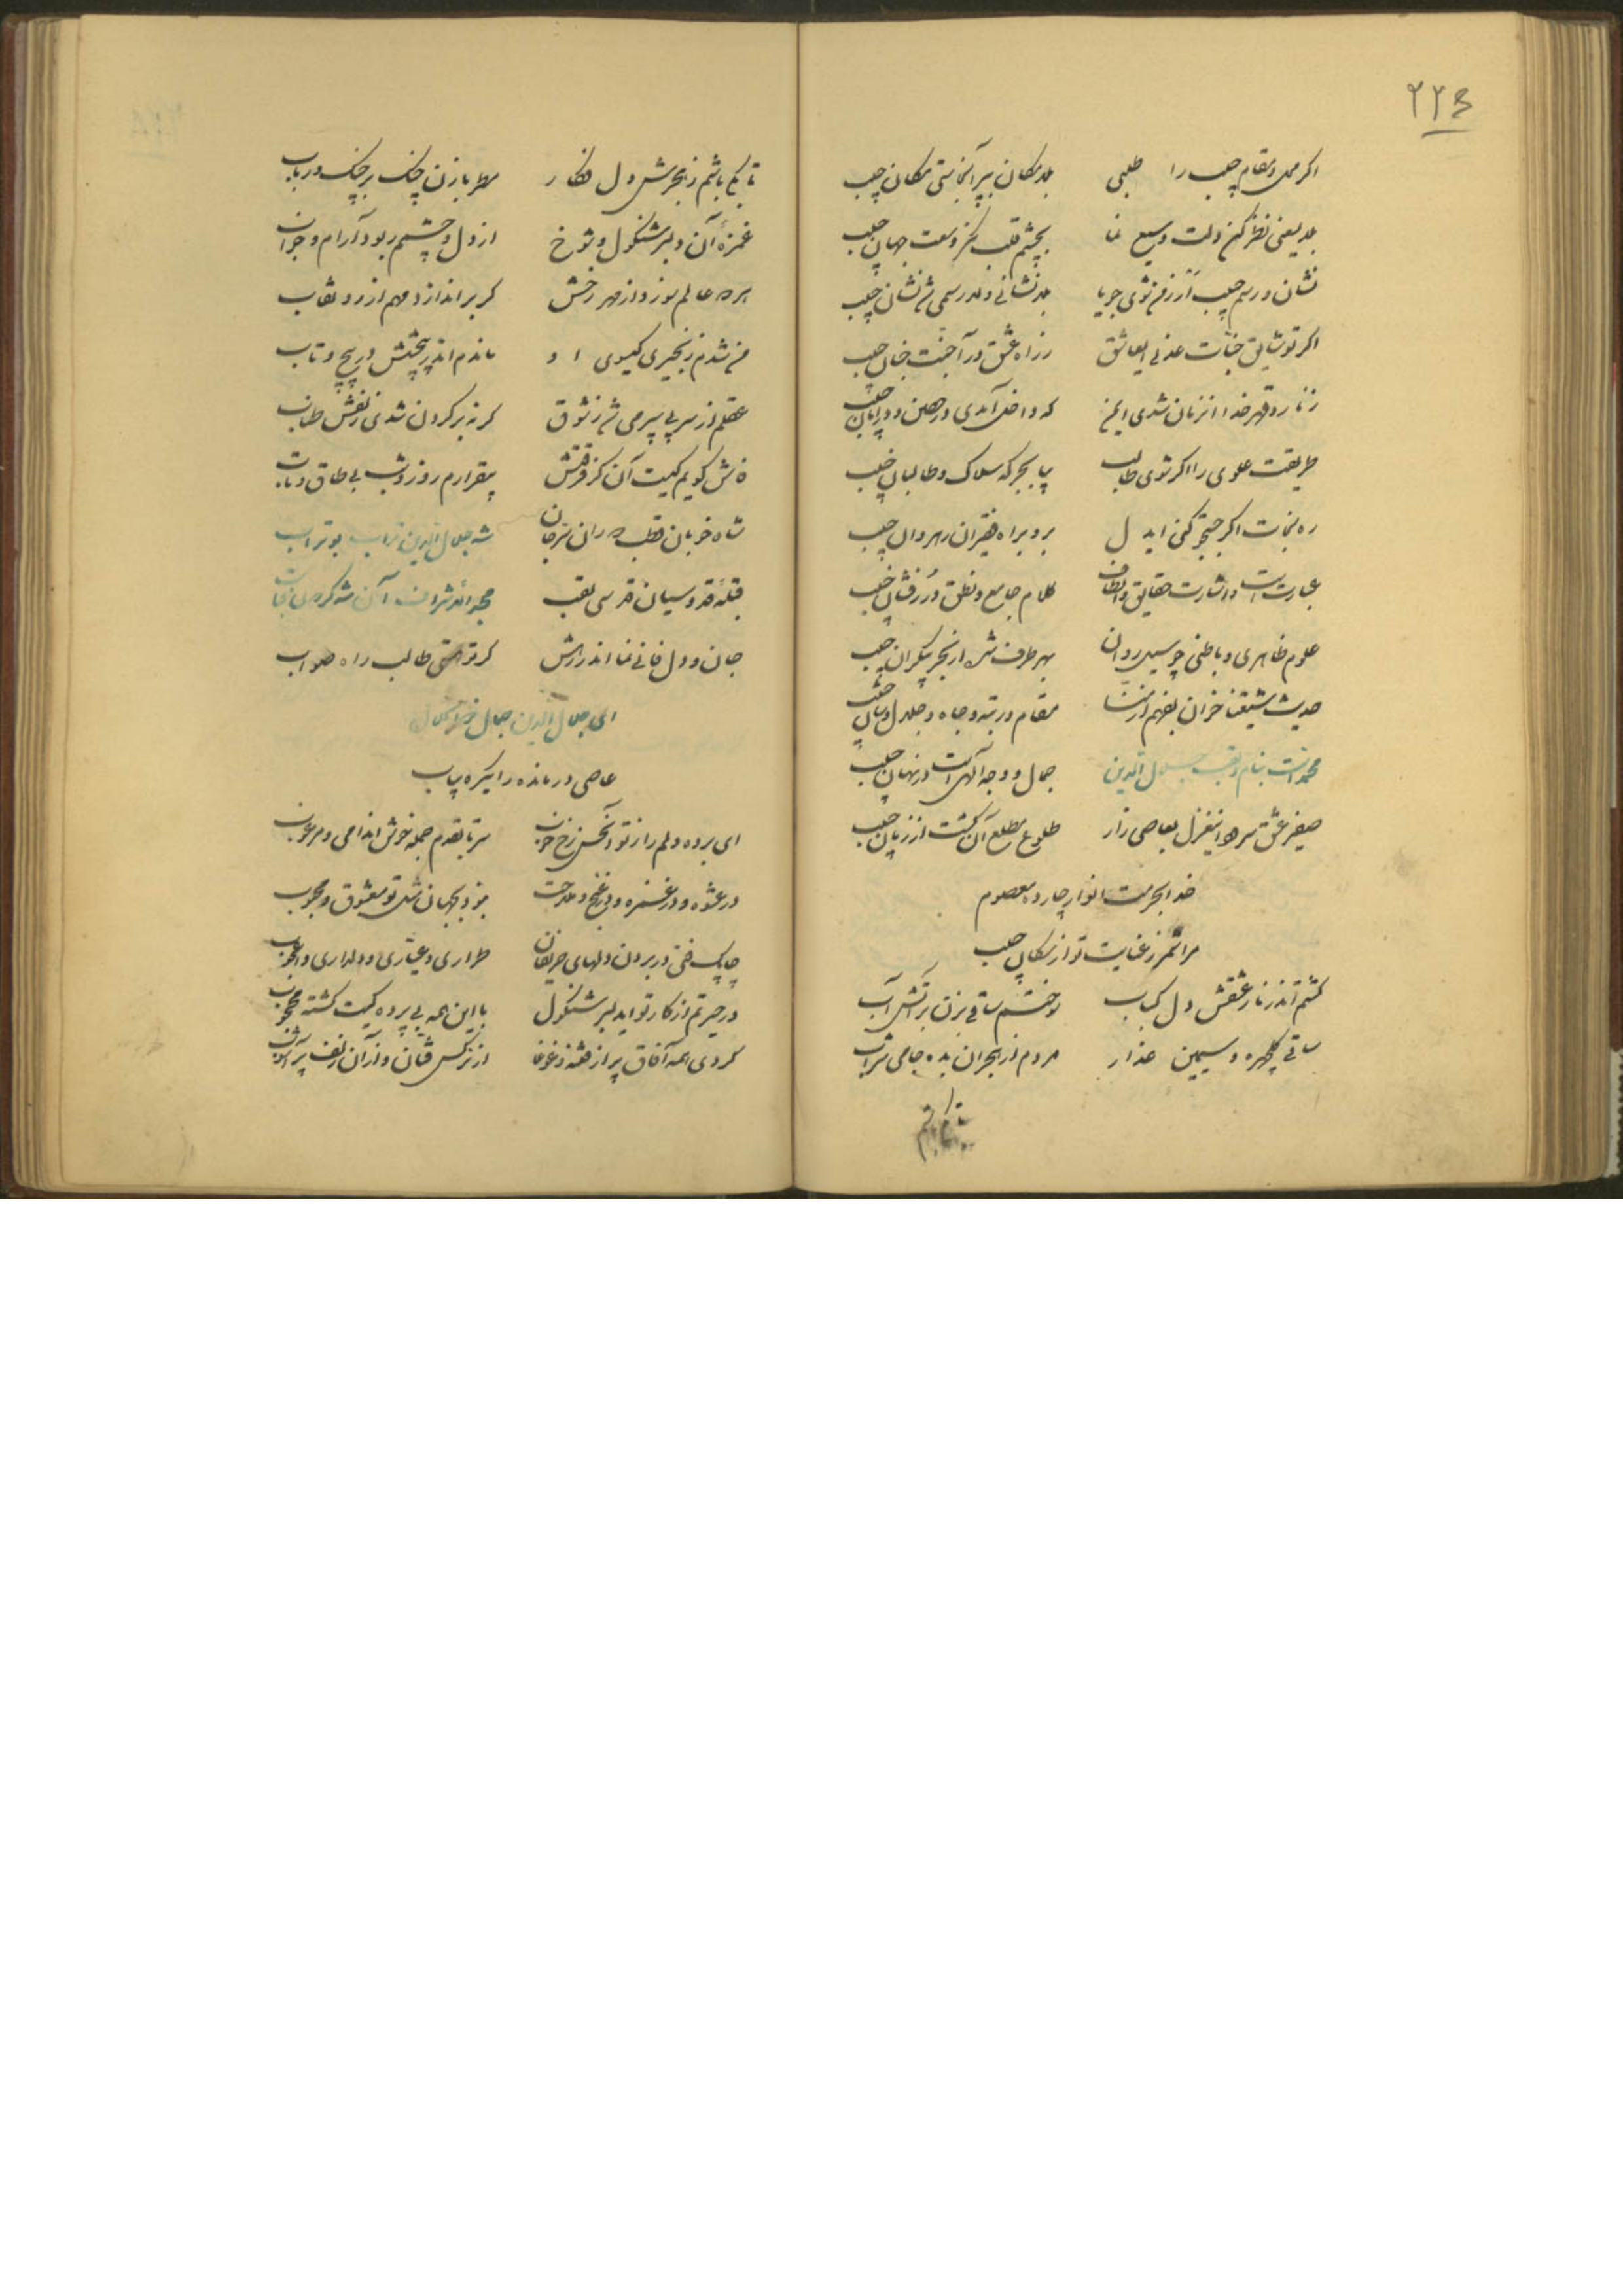 ۲۲۶
اگر محل و مقام حبیب را طلبی بلامکان ببر آنجاستی مکان حبیب
بلد یعنی نظر کن دلت وسیع نما بچشم قلب نگر وسعت جهان حبیب
نشان و رسم حبیب ار ز من شوی جویا بلانشانی و لارسمی شد نشان حبیب
اگر تو شایق جنات عدنی ایعاشق ز راه عشق درآ جنت جنان حبیب
ز نار و قهر خدا آنزمان شدی ایمن که داخل آمدی در حصن و در امان حبیب
طریقت علوی را اگر شوی طالب بیا بجرگه سلاک و طالبان حبیب
ره نجات اگر جستجو کنی ایدل برو براه فقیران رهروان حبیب
عبارتست و اشارت حقایق و الطاف کلام جامع و نطق دررفشان حبیب
علوم ظاهری و باطنی چو سیل روان بهر طرف شده از بحر بیکران حبیب
حدیث شیعتنا خوان بفهم از منا مقام و رتبه و جاه و جلال و شان حبیب
محمد است بنام و لقب جلال الدین جمال و وجه آلهی است در نهان حبیب
صفیر عشق سرود اینغزل بعاصی زار طلوع مطلع آن گشت از زبان حبیب
خدا بحرمت انوار چارده معصوم
مرا شمر ز عنایت تو از سگان حبیب
گشتم اندر نار عشقش دل کباب سوختم ساقی بزن بر آتش آب
ساقی گلچهره و سیمین عذار مردم از هجران بده جامی شراب
تا بکی باشم ز هجرش دل فکار مطربا زن چنگ بر چنگ و رباب
غمزه آن دلبر شنگول و شوخ از دل و چشمم ربود آرام و خواب
هر ده عالم سوزد از مهر رخش گر براندازد مهم از رو نقاب
من شدم زنجیری گیسوی او ماندم اندر پیچش در پیچ و تاب
عقلم از سر پی سر می شد ز شوق گر نه بر گردن شدی زلفش طناب
فاش گویم کیست آن کز فرقتش بیقرارم روز و شب بی طاق و تاب
شاه خوبان قطب دوران شه جلال الدین تراب بوتراب
قبله قدوسیان قدسی لقب
جان و دل فانی نما اندر رهش گر تو هستی طالب راه صواب
ای جلال الدین جمال
عاصی درمانده را یکره بیاب
ای برده دلم را ز تو آنحسن رخ خوب سر تا بقدم جمله خوش اندامی و مرغوب
در عشوه و در غمزه و در غنج و ملاحت نبود بجهان مثل تو معشوق و محبوب
چابک فنی در بردن دلهای حریفان طراری و عیاری و دلداری و اعجوب
در حیرتم از کار تو ایدلبر شنگول با این همه بی پرده کیت گشته محجوب
کردی همه آفاق پر از فتنه و غوغا از نرگس فتان و از آن زلف پر آشوب